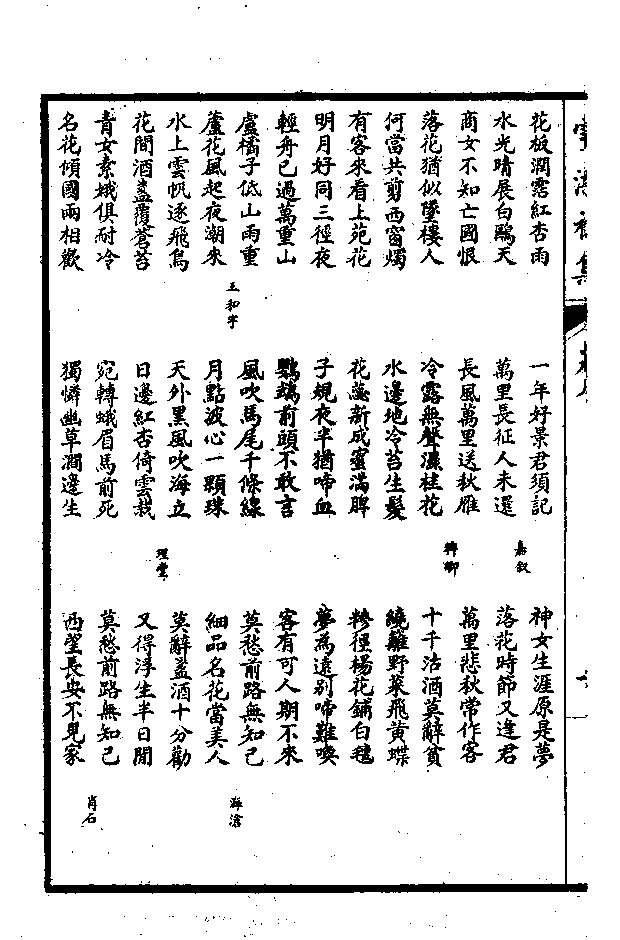 花板潤霑紅杏雨
水光晴展白鷗天
商女不知亡國恨
落花猶似墜樓人
何當共剪西窗燭
有客來看上苑花
明月好同三徑夜
輕舟已過萬重山
盧橘子低山雨重
蘆花風起夜潮來
水上雲帆逐飛鳥
花間酒盞覆蒼苔
青女素娥俱耐冷
名花傾國兩相歡
一年好景君須記
萬里長征人未還
嘉叙
長風萬里送秋雁
冷露無聲濕桂花
水邊地冷苔生髮
花蕊新成蜜滿脾
子規夜半猶啼血
鸚鵡前頭不敢言
風吹馬尾千條線
月點波心一顆珠
天外黑風吹海立
日邊紅杏倚雲栽
理堂
宛轉蛾眉馬前死
獨憐幽草澗邊生
神女生涯原是夢
落花時節又逢君
萬里悲秋常作客
十千沽酒莫辭貧
繞籬野菜飛黃蝶
糝徑楊花鋪白氈
夢為遠別啼難喚
客有可人期不來
莫愁前路無知己
細品名花當美人
莫辭盞酒十分勸
又得浮生半日閒
莫愁前路無知己
西望長安不見家
肖石